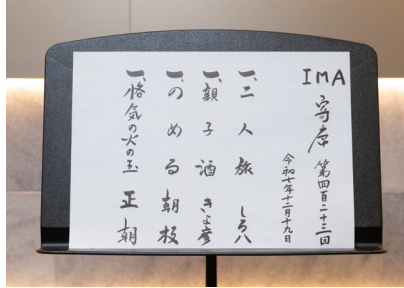 IMA寄席 第四百二十三回
令和七年十二月十九日
一、二人旅 しろ八
一、親子酒 きよ彦
一、のめる 朝枝
一、悋気の火の玉 正朝